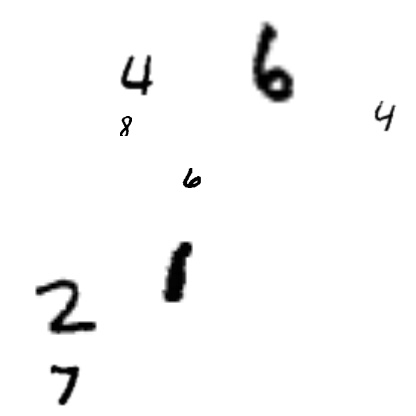 4 6
8 4
6
1
2
7